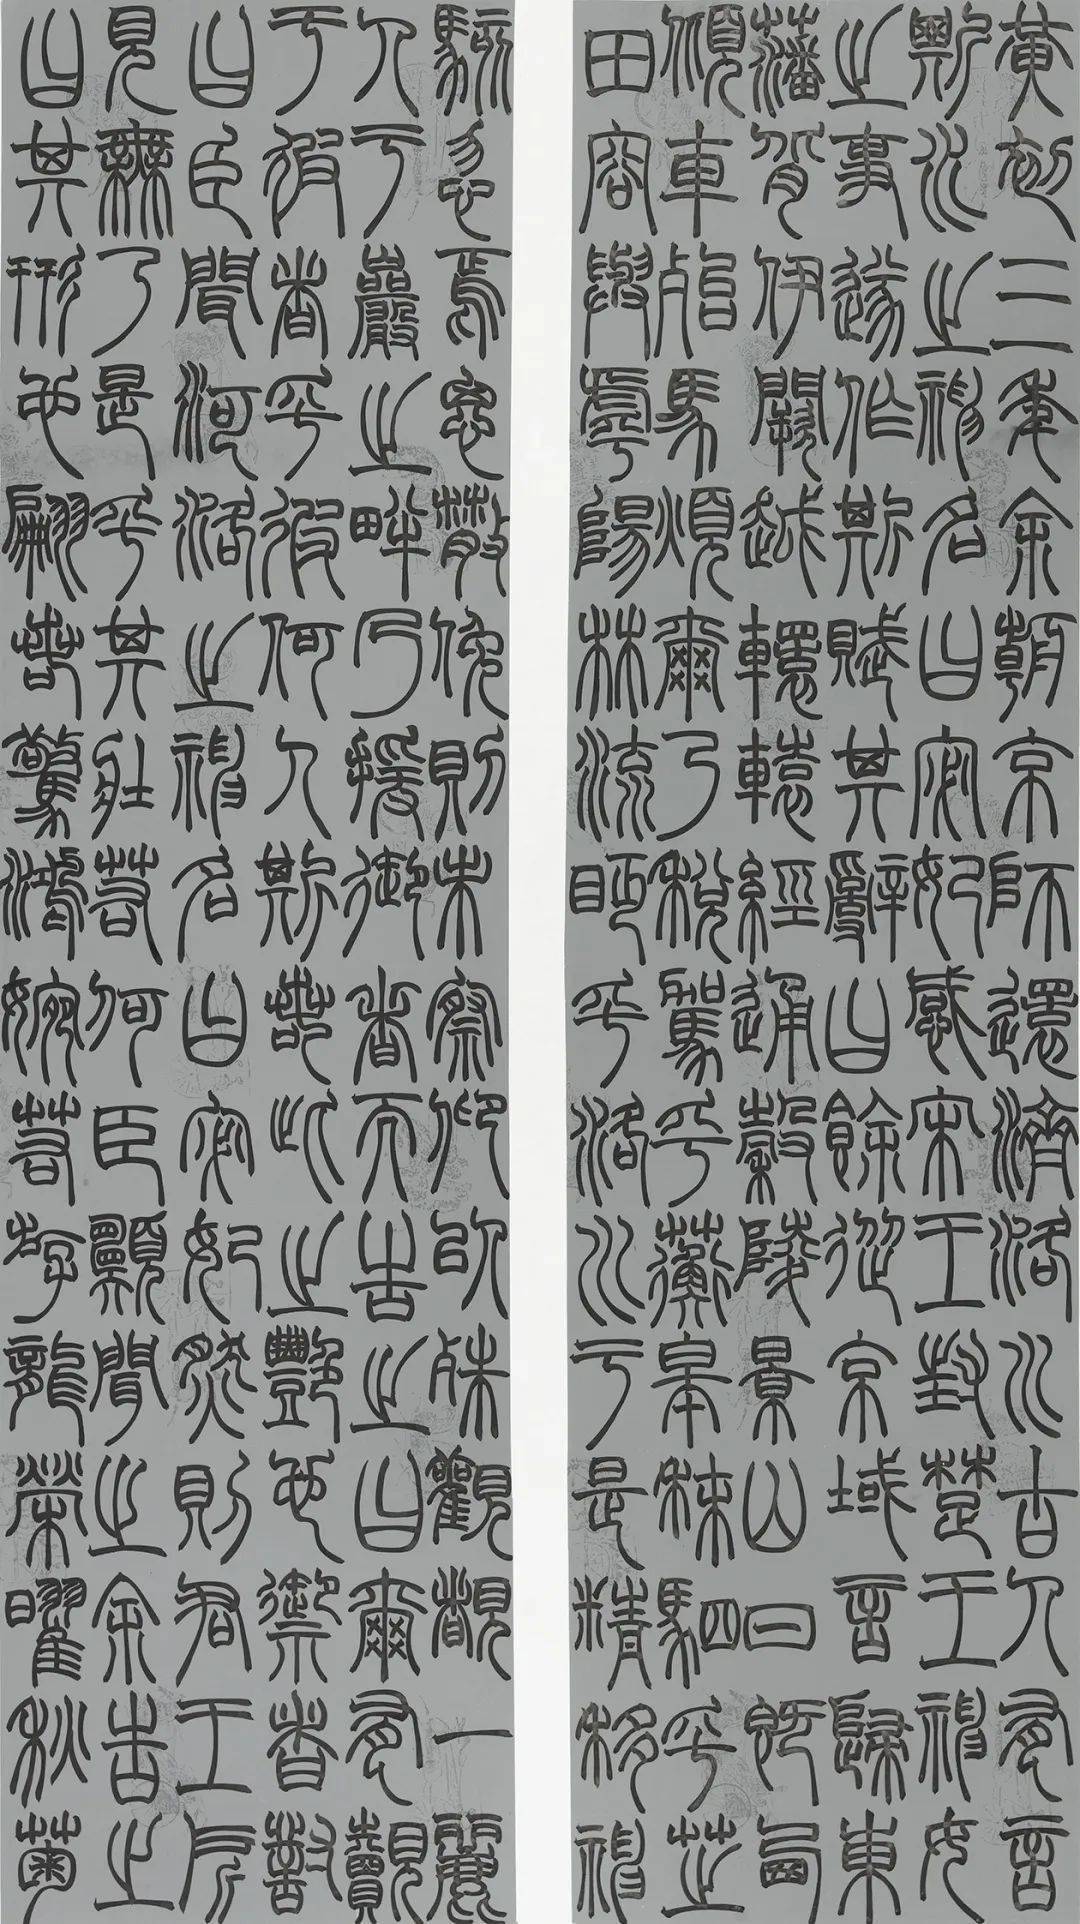 黄初三年余朝京師還濟洛川古人有言
斯水之神名曰宓妃感宋玉對楚王神女
之事遂作斯賦其辭曰余從京域言歸東
藩背伊闕越轘轅經通穀陵景山日既西
傾車殆馬煩爾乃稅駕乎蘅皋秣駟乎芝
田容與乎陽林流眄乎洛川于是精移神
駭忽焉思散俛則未察仰以殊觀覩一麗
人于巖之畔乃援御者而告之曰爾有覿
于彼者乎彼何人斯若此之豔也御者對
曰臣聞河洛之神名曰宓妃然則君王所
見無乃是乎其狀若何臣願聞之余告之
曰其形也翩若驚鴻婉若游龍榮曜秋菊